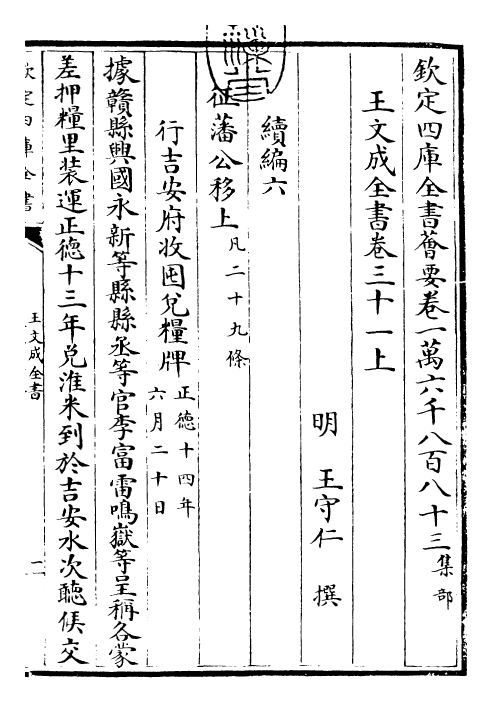 欽定四庫全書薈要卷一萬六千八百八十三集部
王文成全書卷三十一上
明 王守仁 撰
續編六
征藩公移上凡二十九條
行吉安府收囤兌糧牌正德十四年六月二十日
據贛縣興國永新等縣縣丞等官李富雷鳴嶽等呈稱各蒙
差押糧里装運正德十三年兌淮米到於吉安水次聽候交
欽定四庫全書
王文成全書